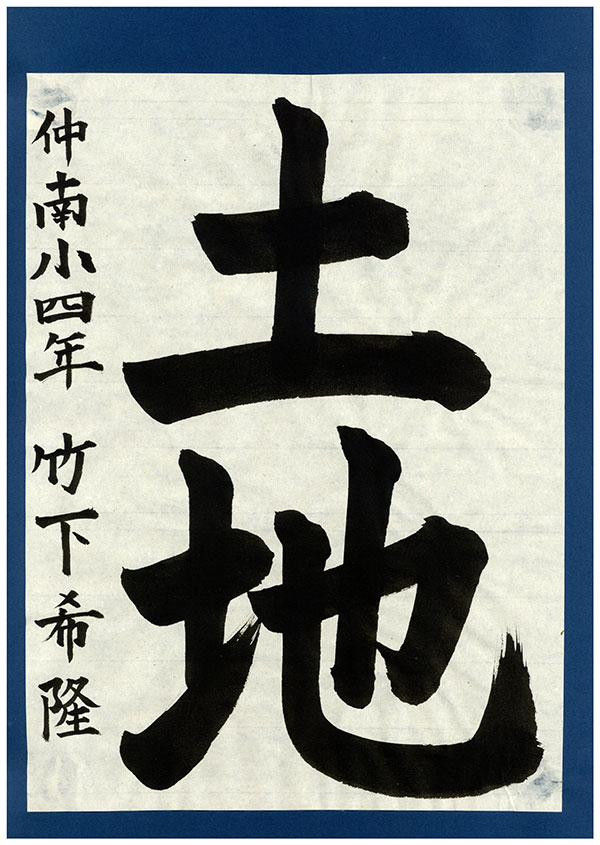 土地
仲南小四年 竹下希隆